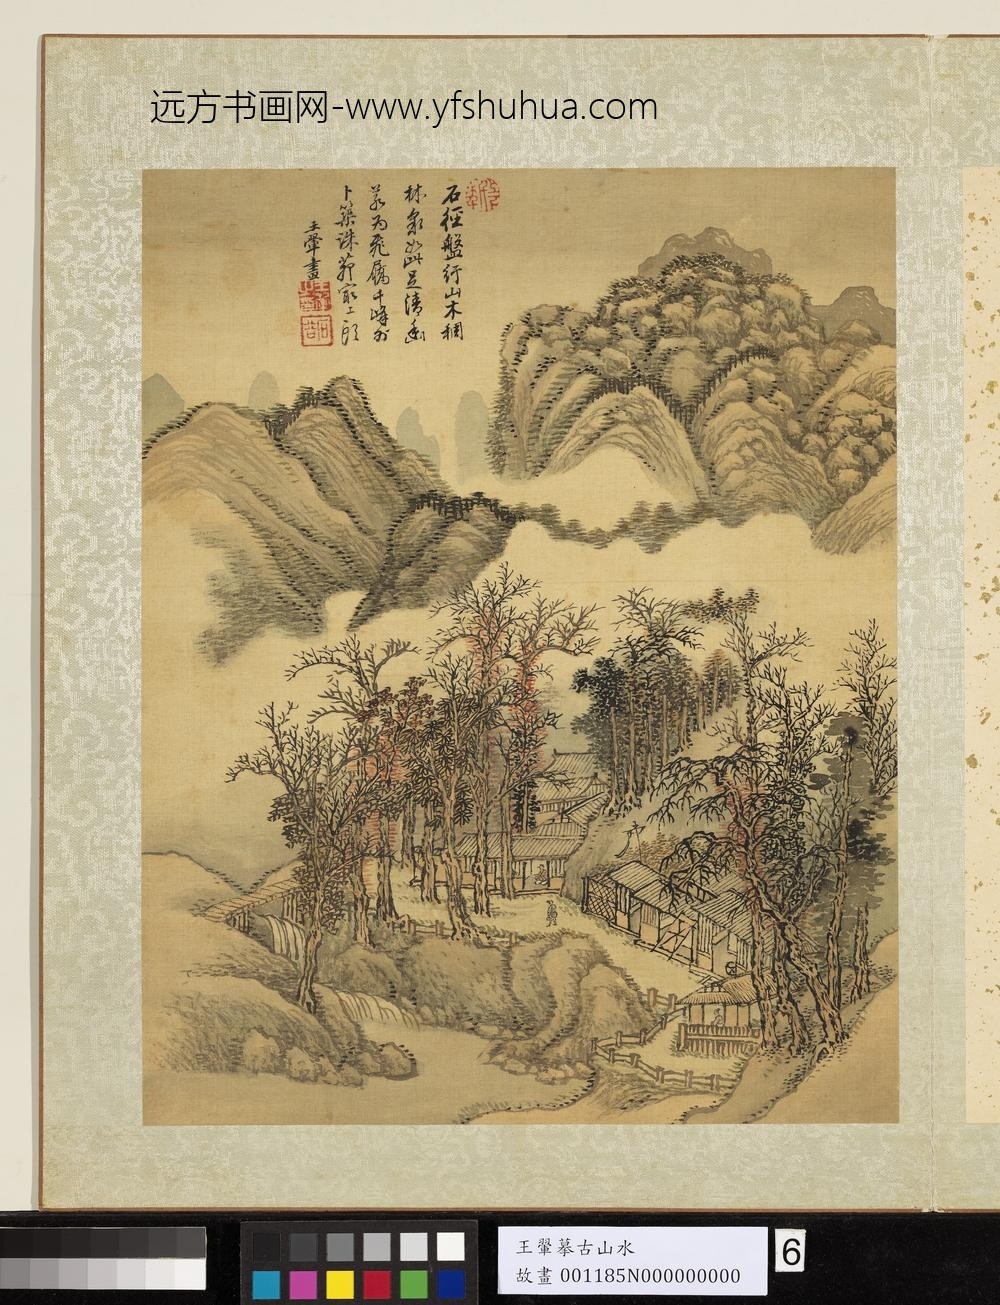 远方书画网-www.yfshuhua.com
石徑盤行山木稠
林泉如此足清幽
若为飛屩千峰外
卜築誅茆最上頭
王翬畫
王翬墓古山水
故畫 001185N000000000
6